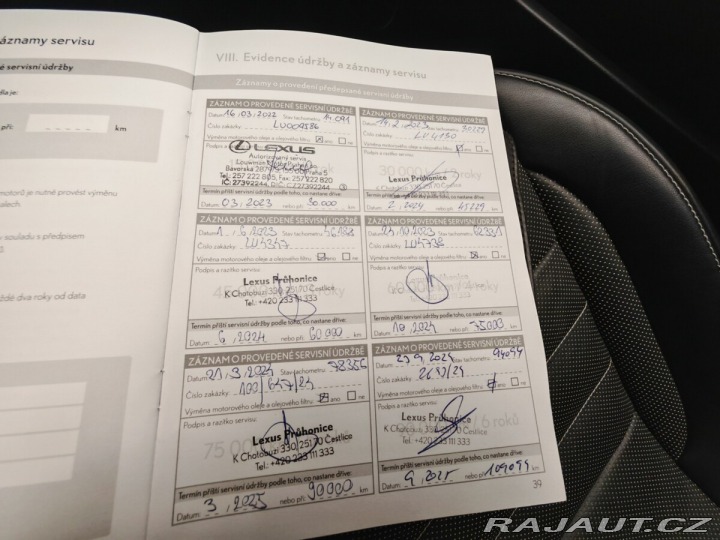 áznamy servisu
é servisní údržby
dla je:
při:
km
motorů je nutné provést výměnu
alech.
souladu s předpisem
ždé dva roky od data
VIII. Evidence údržby a záznamy servisu
Záznamy o provedení předepsané servisní údržby
ZÁZNAM O PROVEDENÉ SERVISNÍ ÚDRŽBĚ
Datum 16.03.2022 Stav tachometru 14 091
Číslo zakázky LU009586
Výměna motorového oleje a olejového filtru: ano ne
Podpis a
LEXUS
Autorizovaný servis
Tel: 257 222 805, Fax: 257 222 820
IČ: 27392244, DIČ: CZ27392244
Termín příští servisní údržby podle toho, co nastane dříve:
Datum 03.2023 nebo při: 30.000 km
ZÁZNAM O PROVEDENÉ SERVISNÍ ÚDRŽBĚ
Datum Stav tachometru
Číslo zakázky
Výměna motorového oleje a olejového filtru: ano ne
Podpis a razítko servisu:
Lexus Průhonice
K Chotobuzi 330, 251 70 Čestlice
Termín příští servisní údržby podle toho, co nastane dříve:
Datum: 2. 2024 nebo při: 45229 km
ZÁZNAM O PROVEDENÉ SERVISNÍ ÚDRŽBĚ
Datum 1. 6 2023 Stav tachometru
Číslo zakázky LU4347
Výměna motorového oleje a olejového filtru: ano ne
Podpis a razítko servisu:
Lexus Průhonice
K Chotobuzi 330, 251 70 Čestlice
Tel.: +420 233 111 333
Termín příští servisní údržby podle toho, co nastane dříve:
Datum: 6. 2024 nebo při: 60 000 km
ZÁZNAM O PROVEDENÉ SERVISNÍ ÚDRŽBĚ
Datum Stav tachometru 62331
Číslo zakázky LU4738
Výměna motorového oleje a olejového filtru: ano ne
Podpis a razítko servisu:
Lexus Průhonice
K Chotobuzi 330, 251 70 Čestlice
Tel.: +420 233 111 333
Termín příští servisní údržby podle toho, co nastane dříve:
Datum: 10. 2024 nebo při: 75000 km
ZÁZNAM O PROVEDENÉ SERVISNÍ ÚDRŽBĚ
Datum 21. 3 2024 Stav tachometru 78356
Číslo zakázky: 100/647/24
Výměna motorového oleje a olejového filtru: ano ne
Podpis a razítko servisu:
75 000
Lexus Průhonice
K Chotobuzi 330, 251 70 Čestlice
Tel.: +420 233 111 333
Termín příští servisní údržby podle toho, co nastane dříve:
Datum: 3. 2025 nebo při: 90000 km
ZÁZNAM O PROVEDENÉ SERVISNÍ ÚDRŽBĚ
Datum 23 9. 2024 Stav tachometru 94094
Číslo zakázky:
Výměna motorového oleje a olejového filtru: ano ne
Podpis a razítko servisu:
/ 6 roků
Lexus Průhonice
K Chotobuzi 330, 251 70 Čestlice
Tel.: +420 233 111 333
Termín příští servisní údržby podle toho, co nastane dříve:
Datum: 9. 2025 nebo při: 109094 km
39
RAJAUT.CZ